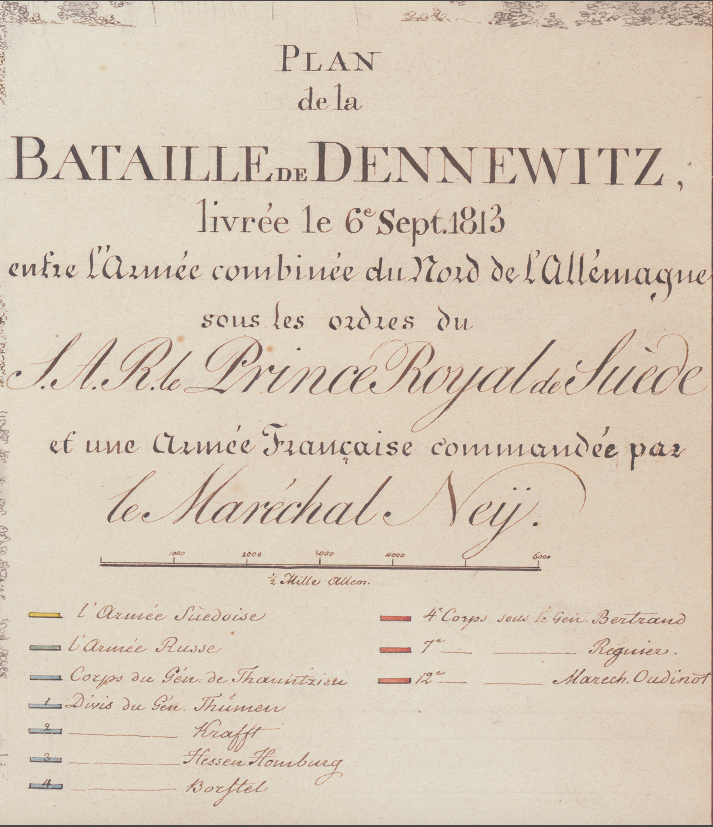 PLAN
de la
BATAILLE DE DENNEWITZ,
livrée le 6e Sept. 1813
entre l'Armée combinée du Nord de l'Allémagne
sous les ordres du
S.A.R. le Prince Royal de Suède
et une Armée Française commandée par
le Maréchal Neÿ.
1000 2000 3000 4000 6000
½ Mille Allem.
l'Armée Süedoise
l'Armée Russe
Corps du Gén. de Thauntzien
1 Divis du Gén. Thümen
2 Krafft
3 Hessen Homburg
4 Borstel
4e Corps sous le Gén. Bertrand
7e Regnier.
12e Marech. Oudinot